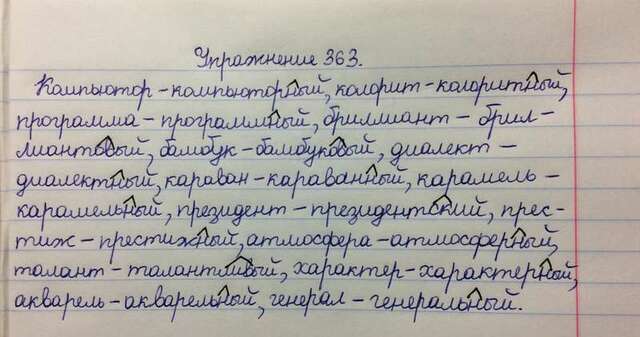 Упражнение 363.
Компьютор - компьюторный, колорит - колоритный,
программа - программный, бриллиант - брил-
лиантовый, бамбук - бамбуковый, диалект -
диалектный, караван - караванный, карамель -
карамельный, президент - президентский, прес-
тиж - престижный, атмосфера - атмосферный,
талант - талантливый, характер - характерный,
акварель - акварельный, генерал - генеральный.